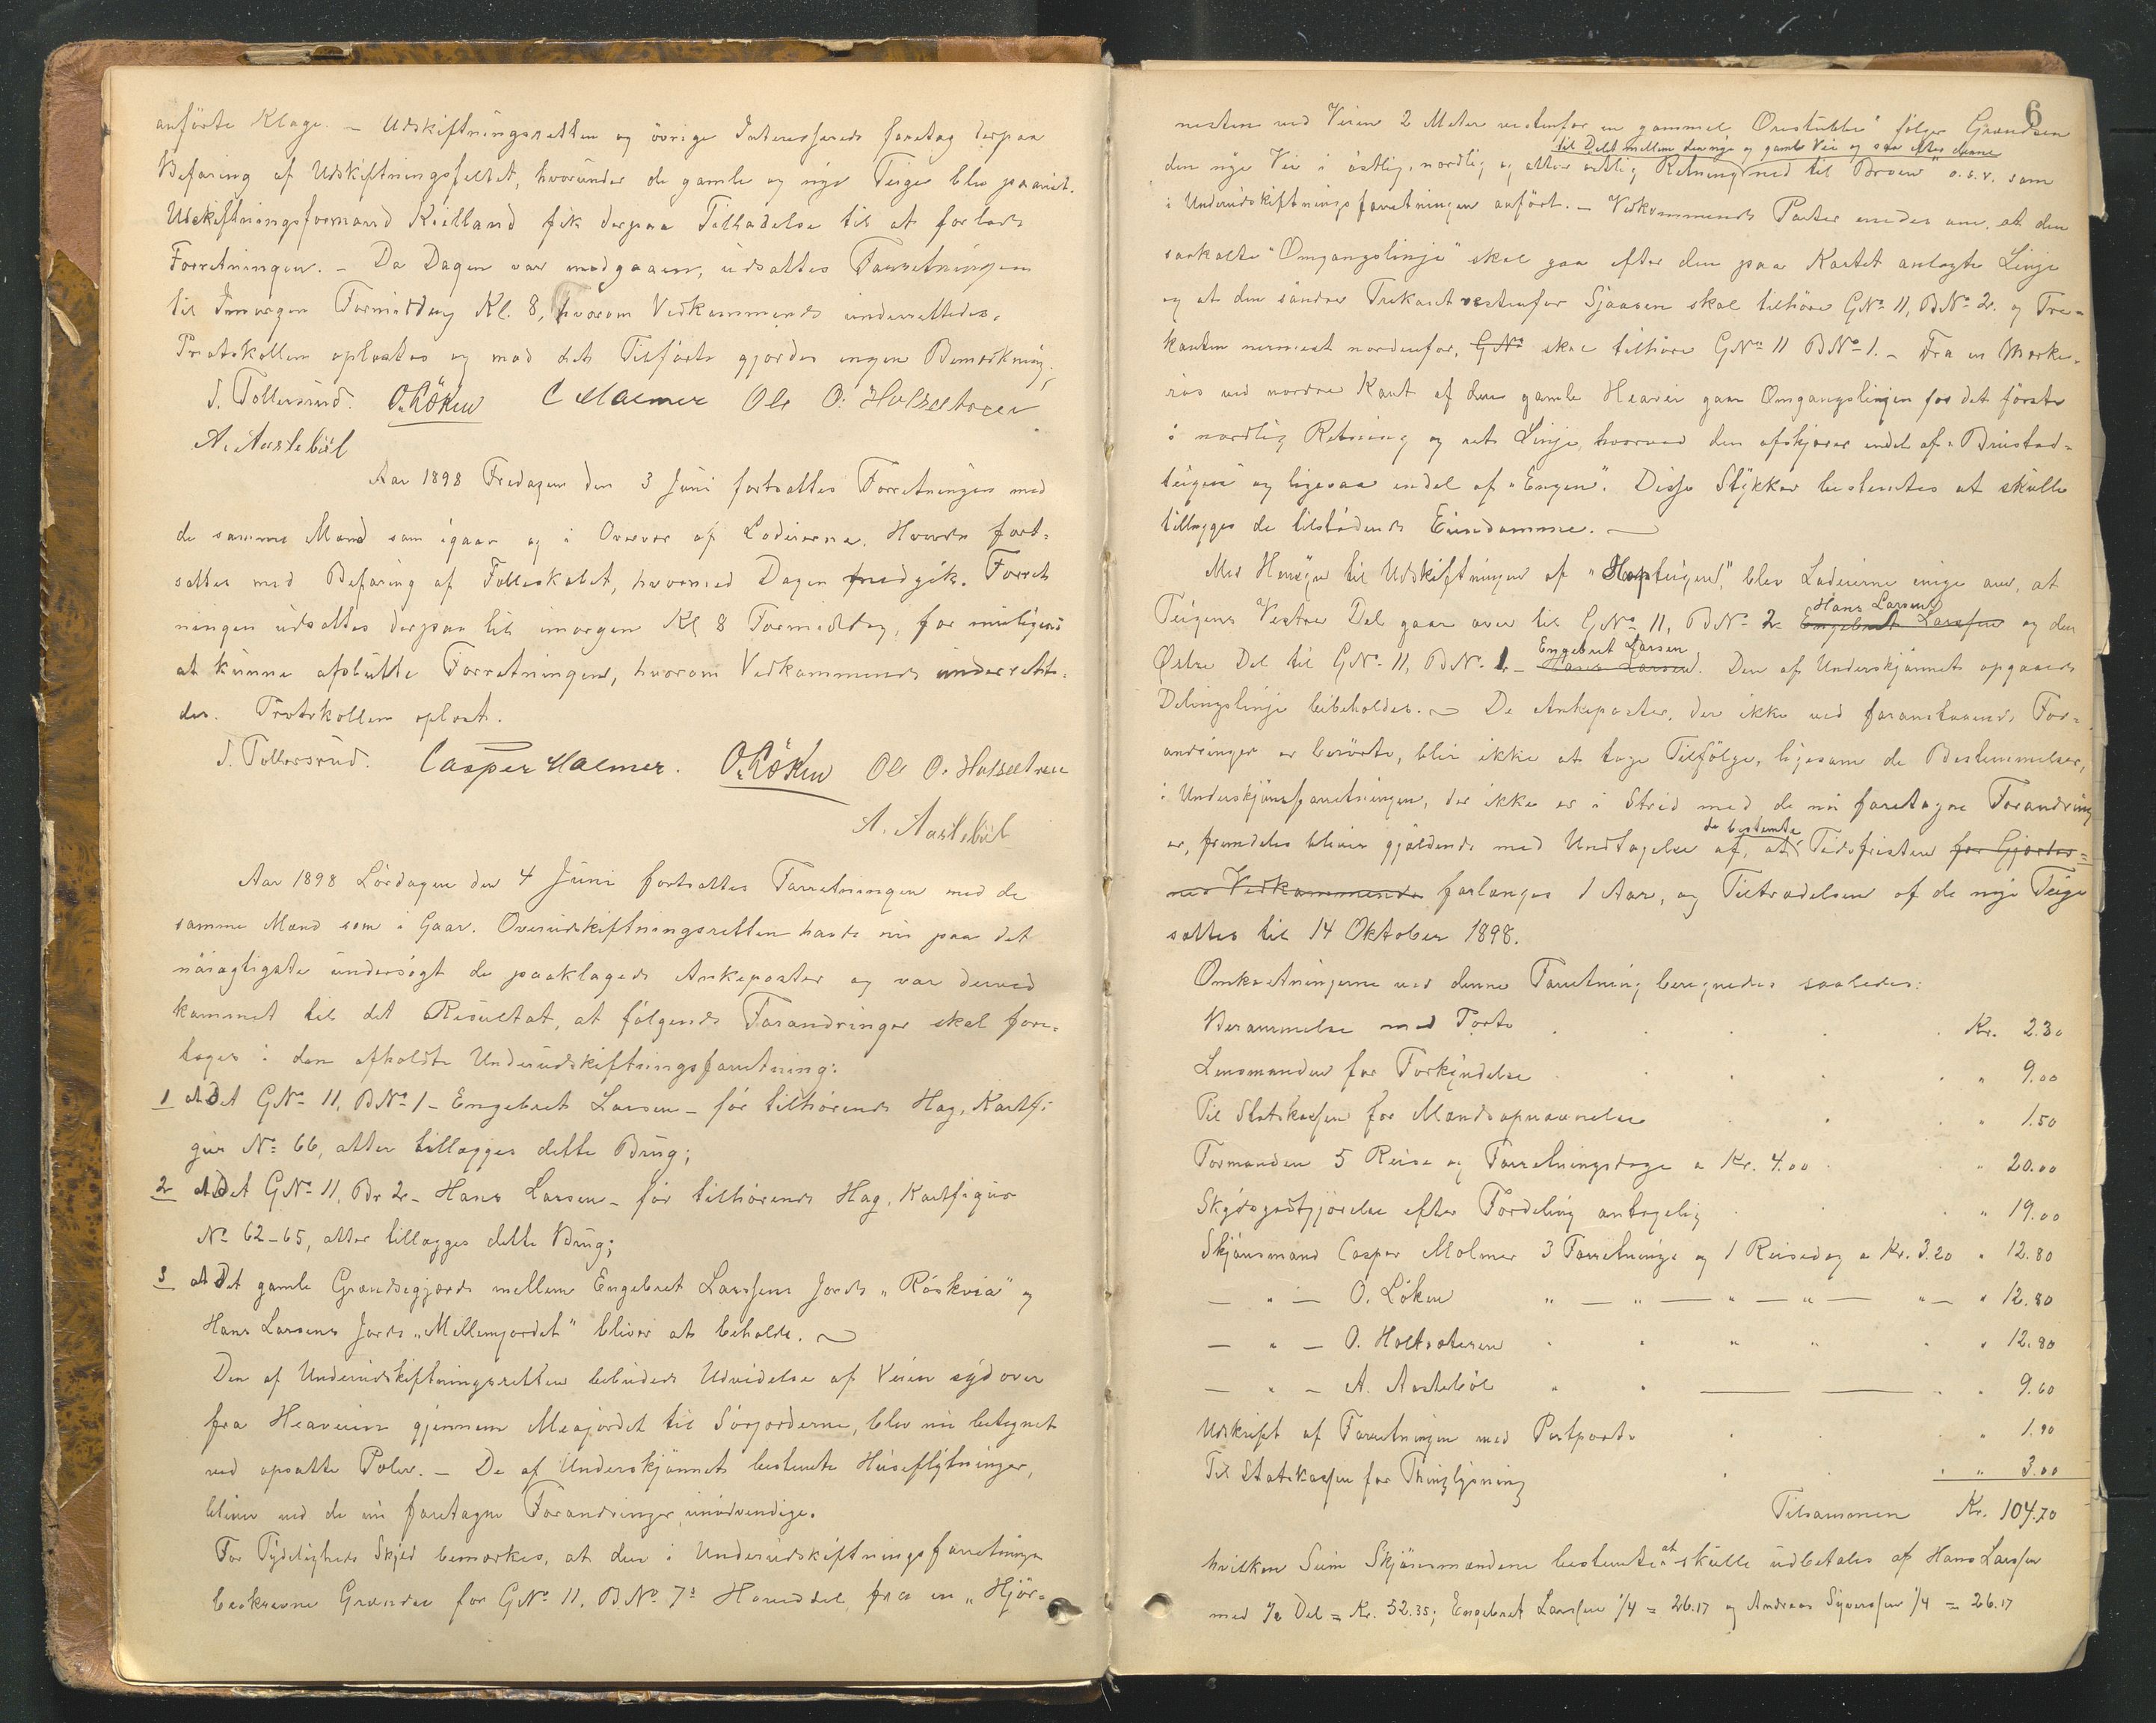 anförte Klage. – Udskiftningsretten og övrige Interesserede foretog derpaa
Befaring af Udskiftningsfeltet, hvorunder de gamle og nye Teige blev paavist.
Udskiftningsformand Kielland fik derpaa Tilladelse til at forlade
Forretningen. – Da Dagen var medgaaen, udsattes Forretningen
til Imorgen Formiddag Kl. 8, hvorom Vedkommende underrettedes.
Protokollen oplæstes og mod det Tilförte gjordes ingen Bemærkning.
J. Tollersrud. O. Löken C Malmer Ole O. Holsetereen
A. Aasteböl
Aar 1898 Fredagen den 3 Juni fortsattes Forretningen med
de samme Mænd som igaar og i Overvær af Lodeierne. Hvorda fort-
sattes med Befaring af Fælleskabet, hvormed Dagen medgik. Forret
ningen udsattes derpaa til imorgen Kl 8 Formiddag, for muligens
at kunne afslutte Forretningen, hvorom Vedkommende underrette-
des. Protokollen oplæst.
J. Tollersrud. Casper Malmer. O. Löken Ole O. Holseetreen
A. Aasteböl
Aar 1898 Lördagen den 4 Juni fortsattes Forretningen med de
samme Mænd som i Gaar. Overudskiftningsretten havde nu paa det
nöiagtigste undersögt de paaklagede Ankeposter og var derved
kommet til det Resultat, at fölgende Forandringer skal fore-
tages i den afholdte Underudskiftningsforretning:
1 at Det GNo 11, BNo 1 – Engebret Larsen – för tilhörende Hag, Kartfi-
gur No 66, atter tillægges dette Brug;
2 at Det GNo 11, Br 2 – Hans Larsen – för tilhörende Hag, Kartfigur
No 62–65, atter tillægges dette Brug;
3 at Det gamle Grændsegjærde mellem Engebret Larssens Jorde „Röskvia" og
Hans Larsens Jorde „Mellemjordet" bliver at beholde.
Den af Underudskiftningsretten bebudede Udvidelse af Veien sydover
fra Heaveien gjennem Meajordet til Sörjorderne, blev nu betegnet
ved opsatte Pæler. – De af Underskjönnet bestemte Huseflytninger,
bliver ved de nu foretagne Forandringer unödvendige.
For Tydeligheds Skyld bemærkes, at den i Underudskiftningsforretningen
beskrevne Grændse for GNo 11, BNo 7s Hoveddel fra en „Hjör-
6
nesten ved Veien 2 Meter vestenfor en gammel Orestubbe" fölger Grændsen
til Delet mellem den nye og gamle Vei og saa efter denne
den nye Vei i östlig, nordlig og atter östlig Retning ned til Broen" o.s.v. som
i Underudskiftningsforretningen anfört. – Vedkommende Parter enedes om, at den
saakaldte "Omgangslinje" skal gaa efter den paa Kartet anlagte Linje
og at den söndre Trekant vestenfor Sjaaen skal tilhöre GNo 11, BNo 2. og Tre-
kanten nærmest nordenfor, GNo skal tilhöre GNo 11 BNo 1. – Fra en Mærke-
rös ved nordre Kant af den gamle Heavei gaar Omgangslinjen for det förste
i nordlig Retning og ret Linje, hvorved den afskjærer endel af „Brustad-
teigen" og ligesaa endel af „Engen". Disse Stykker bestemtes at skulle
tillægges de tilstödende Eiendomme.
Med Hensyn til Udskiftningen af "Slaapteigen", blev Lodeierne enige om, at
Teigens Vestre Del gaar over til GNo 11, BNo 2 Engebret Larssen Hans Larsen og den
Östre Del til GNo 11, BNo 1 – Hans Larsen Engebret Larsen. Den af Underskjönnet opgaaede
Delingslinje beibeholdes. De Ankeposter, der ikke ved foranstaaende For-
andringer er berörte, blir ikke at tage Tilfölge, ligesom de Bestemmelser,
i Underskjönsforretningen, der ikke er i Strid med de nu foretagne Forandring
er, fremdeles bliver gjældende med Undtagelse af, at de bestemte Tidsfrister for Gjærdes-
nes Vedkommende forlænges 1 Aar, og Tiltrædelsen af de nye Teige
sættes til 14 Oktober 1898.
Omkostningerne ved denne Forretning beregnedes saaledes:
Berammelse med Porto Kr. 2.30
Lensmanden for Forkyndelse " 9.00
Til Statskassen for Mændsopnævnelse " 1.50
Formanden 5 Reise og Forretningsdage a Kr. 4.00 " 20.00
Skydsgodtgjörelse efter Fordeling antagelig " 19.00
Skjönsmand Casper Molmer 3 Forretnings og 1 Reisedag a Kr. 3.20 " 12.80
— " — O. Löken " — " — " — " — " — " 12.80
— " — O. Holtseteren " " " " " 12.80
— " — A. Aasteböl " " — — " 9.60
Udskrift af Forretningen med Postporto " 1.90
Til Statskassen for Thinglysning " 3.00
Tilsammen Kr. 104.70
hvilken Sum Skjönsmændene bestemte at skulle udbetales af Hans Larssen
med 1/2 Del = Kr. 52.35; Engebret Larssen 1/4 = 26.17 og Andreas Syverssen 1/4 = 26.17